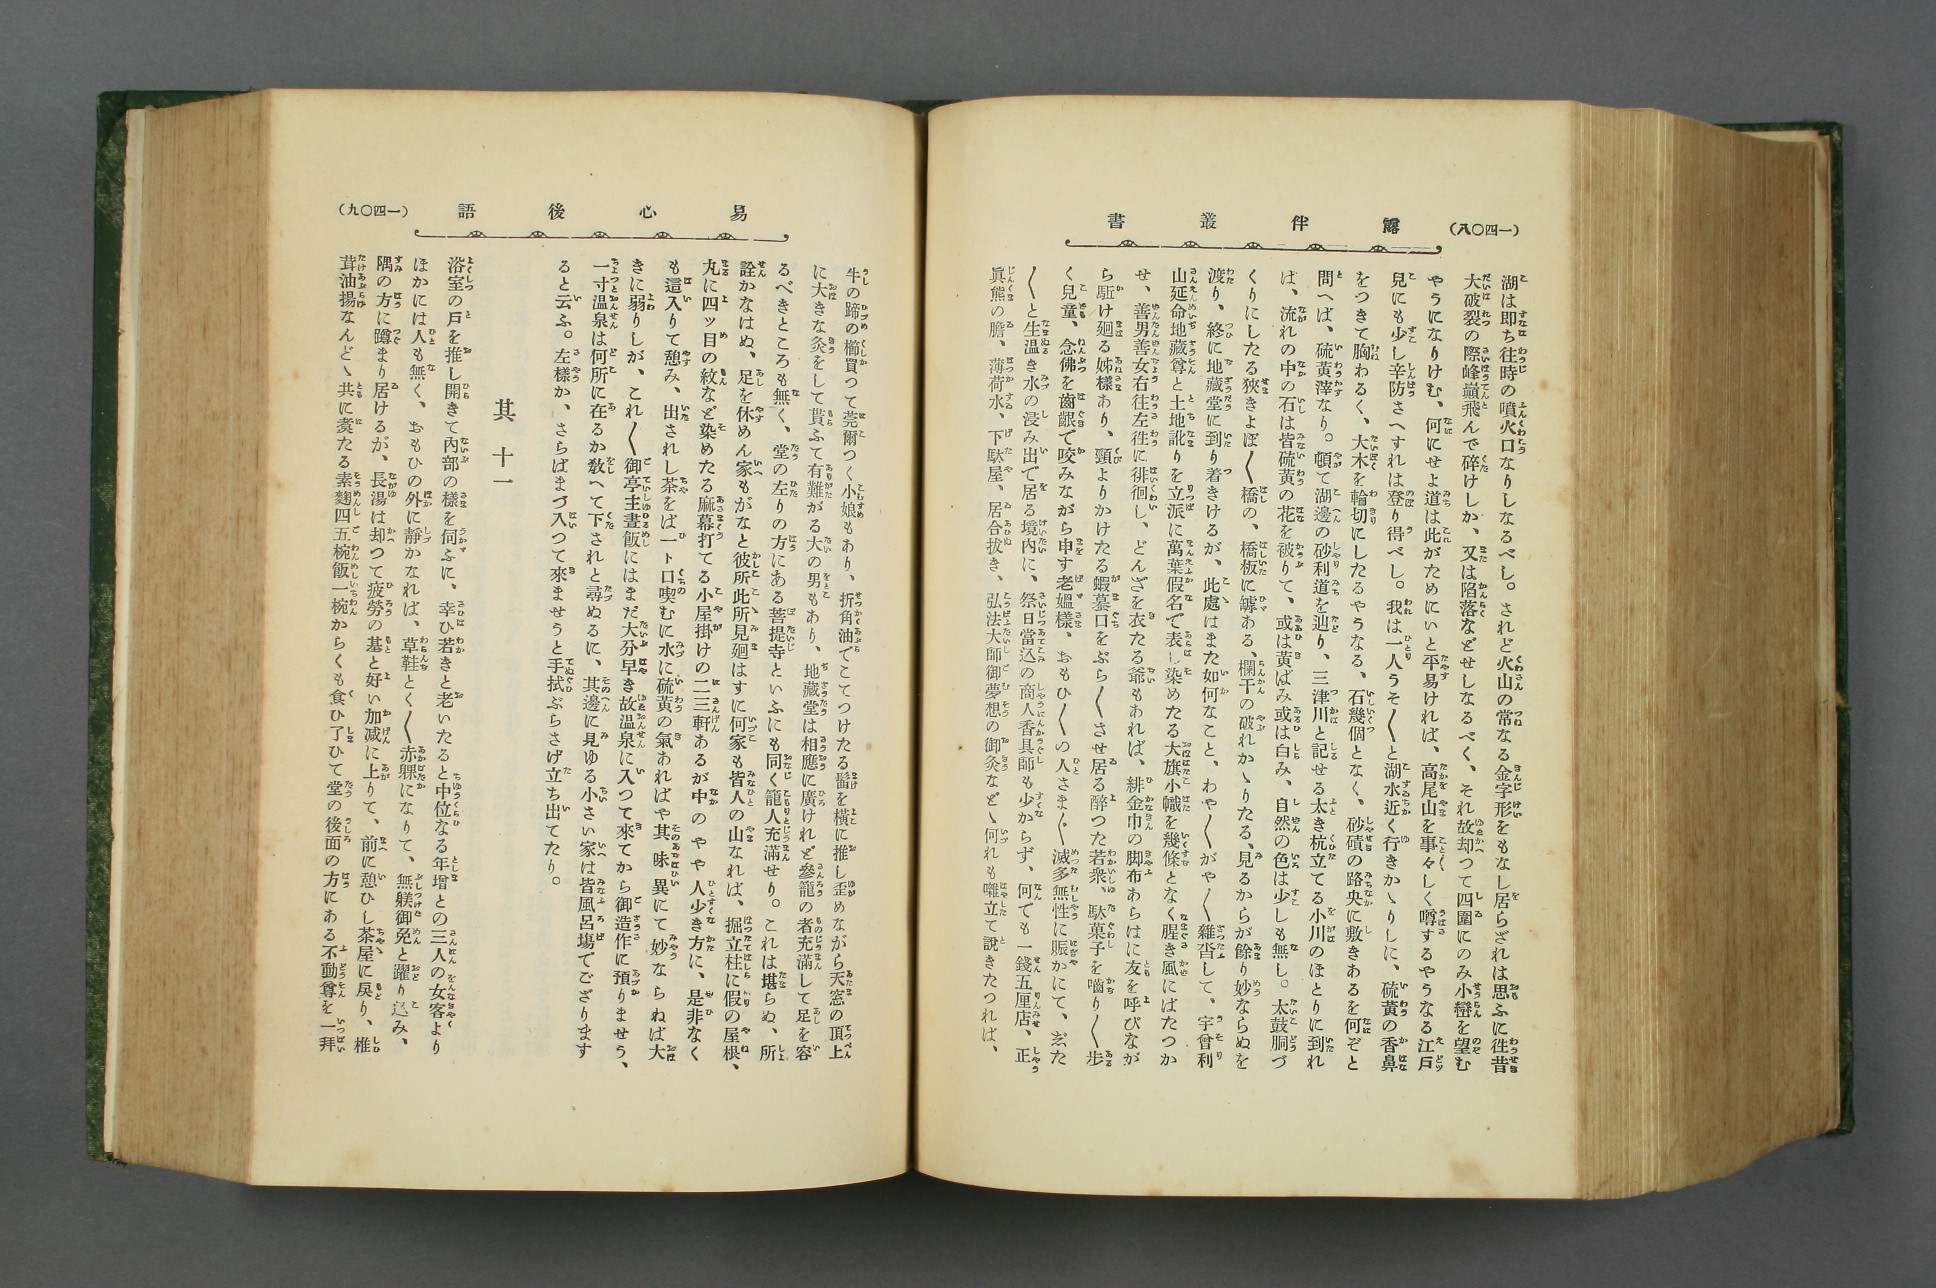 (一四〇八)
露伴叢書
湖は即ち往時の噴火口なりしなるべし。されど火山の常なる金字形をもなし居らざれは思ふに徃昔
大破裂の際峰巓飛んで碎けしか、又は陷落などせしなるべく、それ故却つて四圍にのみ小巒を望む
やうになりけむ、何にせよ道は此がためにいと平易ければ、高尾山を事々しく噂するやうなる江戸
兒にも少し辛防さへすれは登り得べし。我は一人うそ〱と湖水近く行きかゝりしに、硫黄の香鼻
をつきて胸わるく、大木を輪切にしたるやうなる、石幾個となく、砂磧の路央に敷きあるを何ぞと
問へば、硫黄滓なり。頓て湖邊の砂利道を辿り、三津川と記せる太き杭立てる小川のほとりに到れ
ば、流れの中の石は皆硫黄の花を被りて、或は黄ばみ或は白み、自然の色は少しも無し。太鼓胴づ
くりにしたる狹きよぼ〱橋の、橋板に罅ある、欄干の破れかゝりたる、見るからが餘り妙ならぬを
渡り、終に地藏堂に到り着きけるが、此處はまた如何なこと、わや〱がや〱雜沓して、宇曾利
山延命地藏尊と土地訛りを立派に萬葉假名で表し染めたる大旗小幟を幾條となく腥き風にばたつか
せ、善男善女右往左徃に徘徊し、どんざを衣たる爺もあれば、緋金巾の脚布あらはに友を呼びなが
ら駈け廻る姊樣あり、頸よりかけたる蝦蟇口をぶら〱させ居る醉つた若衆、駄菓子を嚙り〱歩
く兒童、念佛を齒齦で咬みながら申す老媼樣、おもひ〱の人さま〲滅多無性に賑かにて、玆た
〱と生温き水の浸み出で居る境內に、祭日當込の商人香具師も少からず、何でも一錢五厘店、正
眞熊の膽、薄荷水、下駄屋、居合拔き、弘法大師御夢想の御灸など〻何れも囃立て說きたつれば、
易心後語
(一四〇九)
牛の蹄の櫛買つて莞爾つく小娘もあり、折角油でこてつけたる髷を橫に推し歪めながら天窓の頂上
に大きな灸をして貰ふて有難がる大の男もあり、地藏堂は相應に廣けれど參籠の者充滿して足を容
るべきところも無く、堂の左りの方にある菩提寺といふにも同く籠人充滿せり。これは堪らぬ、所
詮かなはぬ、足を休めん家もがなと彼所此所見廻はすに何家も皆人の山なれば、掘立柱に假の屋根、
丸に四ッ目の紋など染めたる麻幕打てる小屋掛けの二三軒あるが中のやや人少き方に、是非なく
も這入りて憩み、出されし茶をば一ト口喫むに水に硫黄の氣あればや其味異にて妙ならねば大
きに弱りしが、これ〱御亭主晝飯にはまだ大分早き故温泉に入つて來てから御造作に預りませう、
一寸温泉は何所に在るか敎へて下されと尋ぬるに、其邊に見ゆる小さい家は皆風呂塲でござります
ると云ふ。左樣か、さらばまづ入つて來ませうと手拭ぶらさげ立ち出てたり。
其十一
浴室の戸を推し開きて內部の樣を伺ふに、幸ひ若きと老いたると中位なる年增との三人の女客より
ほかには人も無く、おもひの外に靜かなれば、草鞋とく〱赤躶になりて、無躾御免と躍り込み、
隅の方に蹲まり居けるが、長湯は却つて疲勞の基と好い加減に上りて、前に憩ひし茶屋に戻り、椎
茸油揚なんど〻共に煑たる素麵四五椀飯一椀からくも食ひ了ひて堂の後面の方にある不動尊を一拜